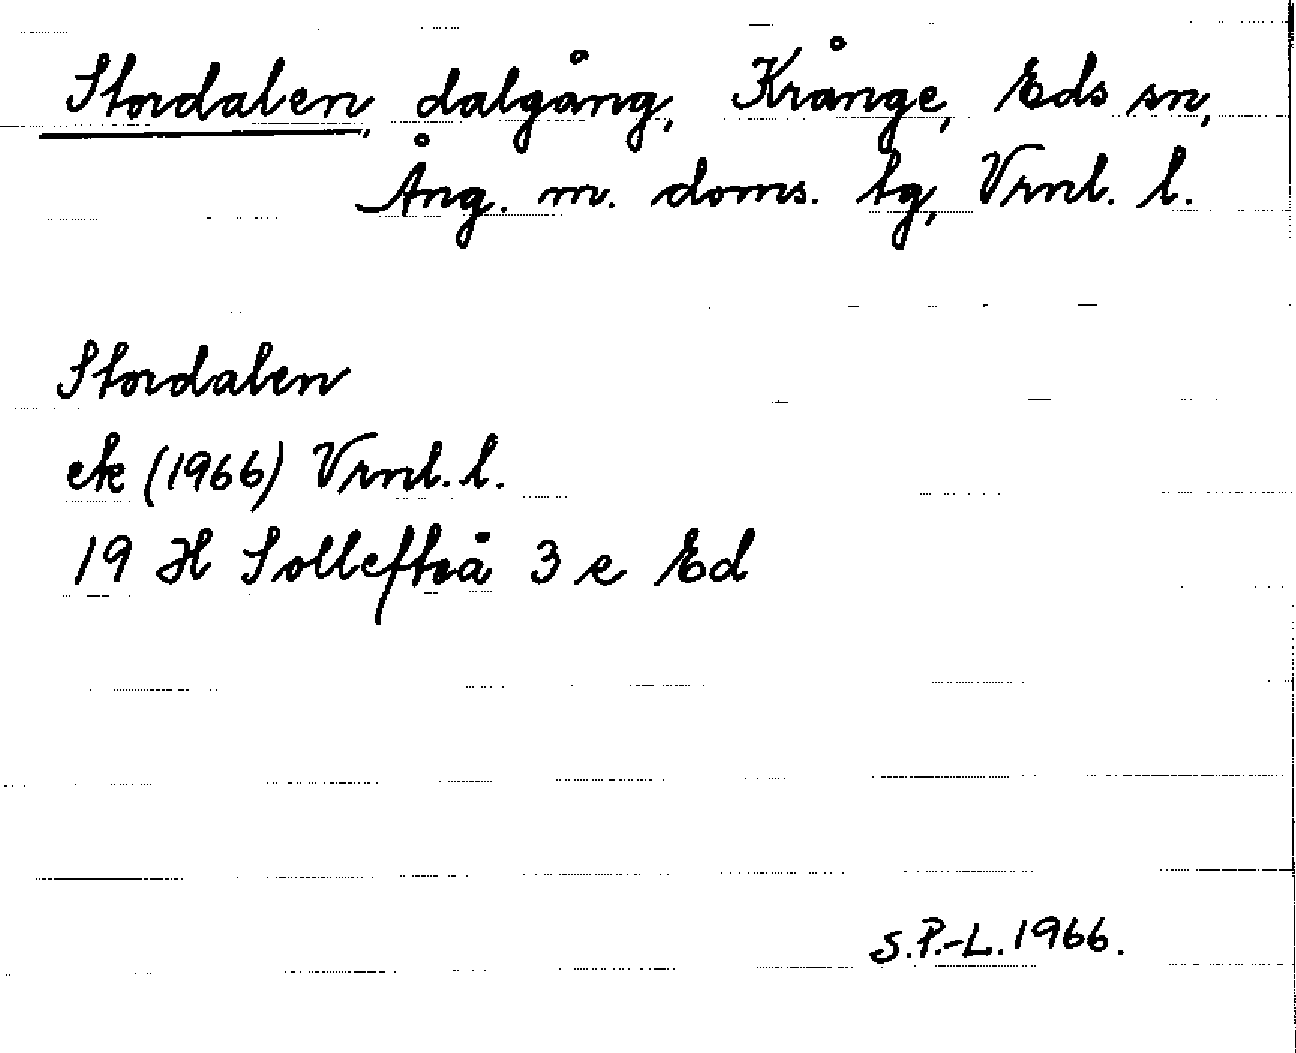 Stordalen, dalgång, Krånge, Eds sn,
Ång. m. doms. tg, Vrnl. l.
Stordalen
ek (1966) Vrnl. l.
19 H Sollefteå 3 e Ed
S.P.-L. 1966.